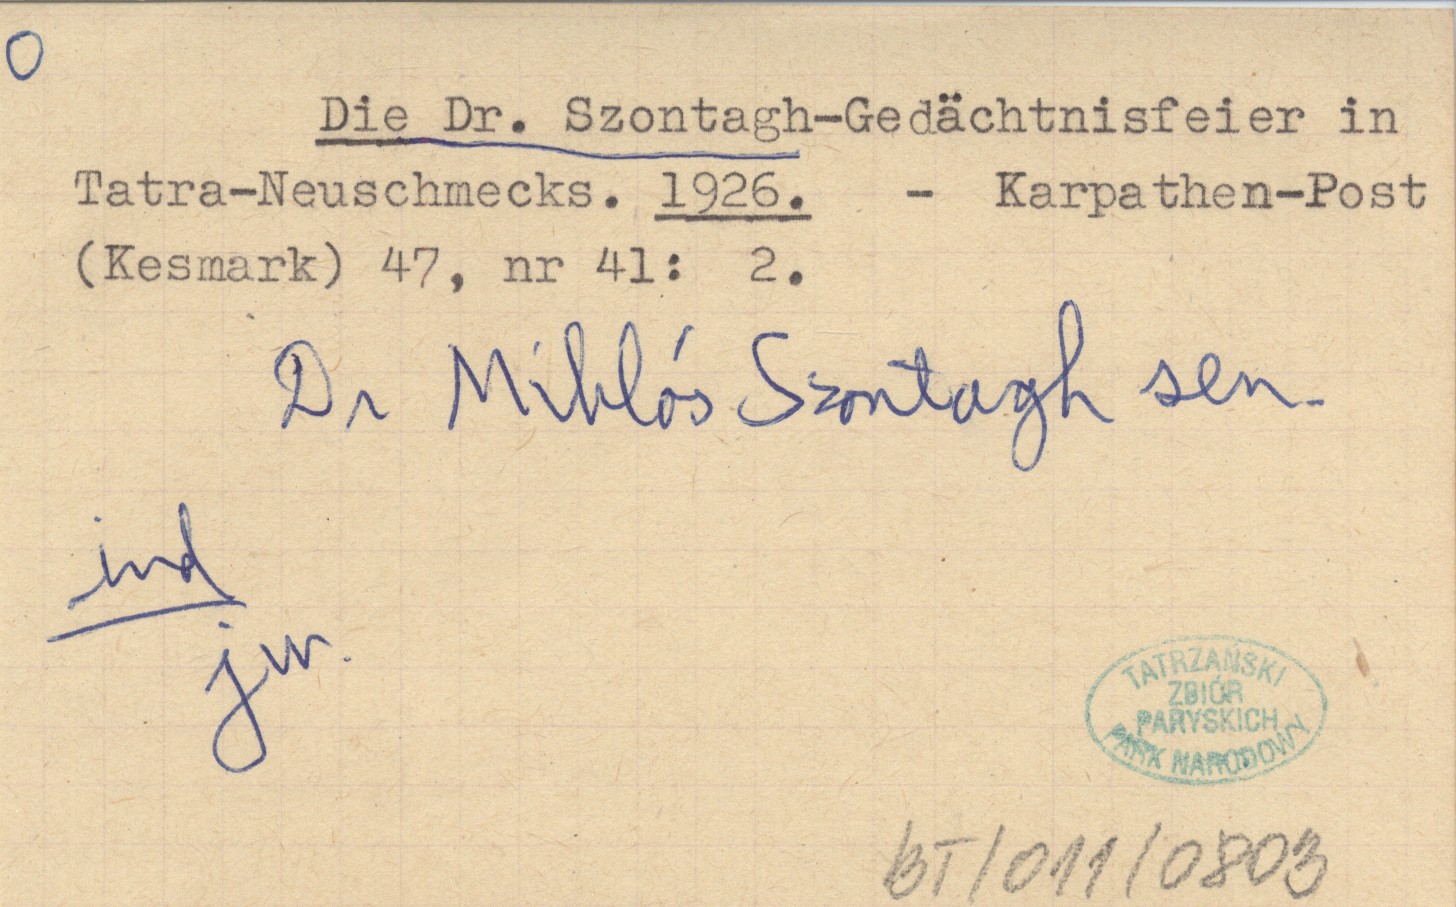 O
Die Dr. Szontagh-Gedächtnisfeier in
Tatra-Neuschmecks. 1926. - Karpathen-Post
(Kesmark) 47, nr 41: 2.
Dr Miklós Szontagh sen.
ind
jw.
TATRZAŃSKI
ZBIÓR
PARYSKICH
PARK NARODOWY
BT/011/0803